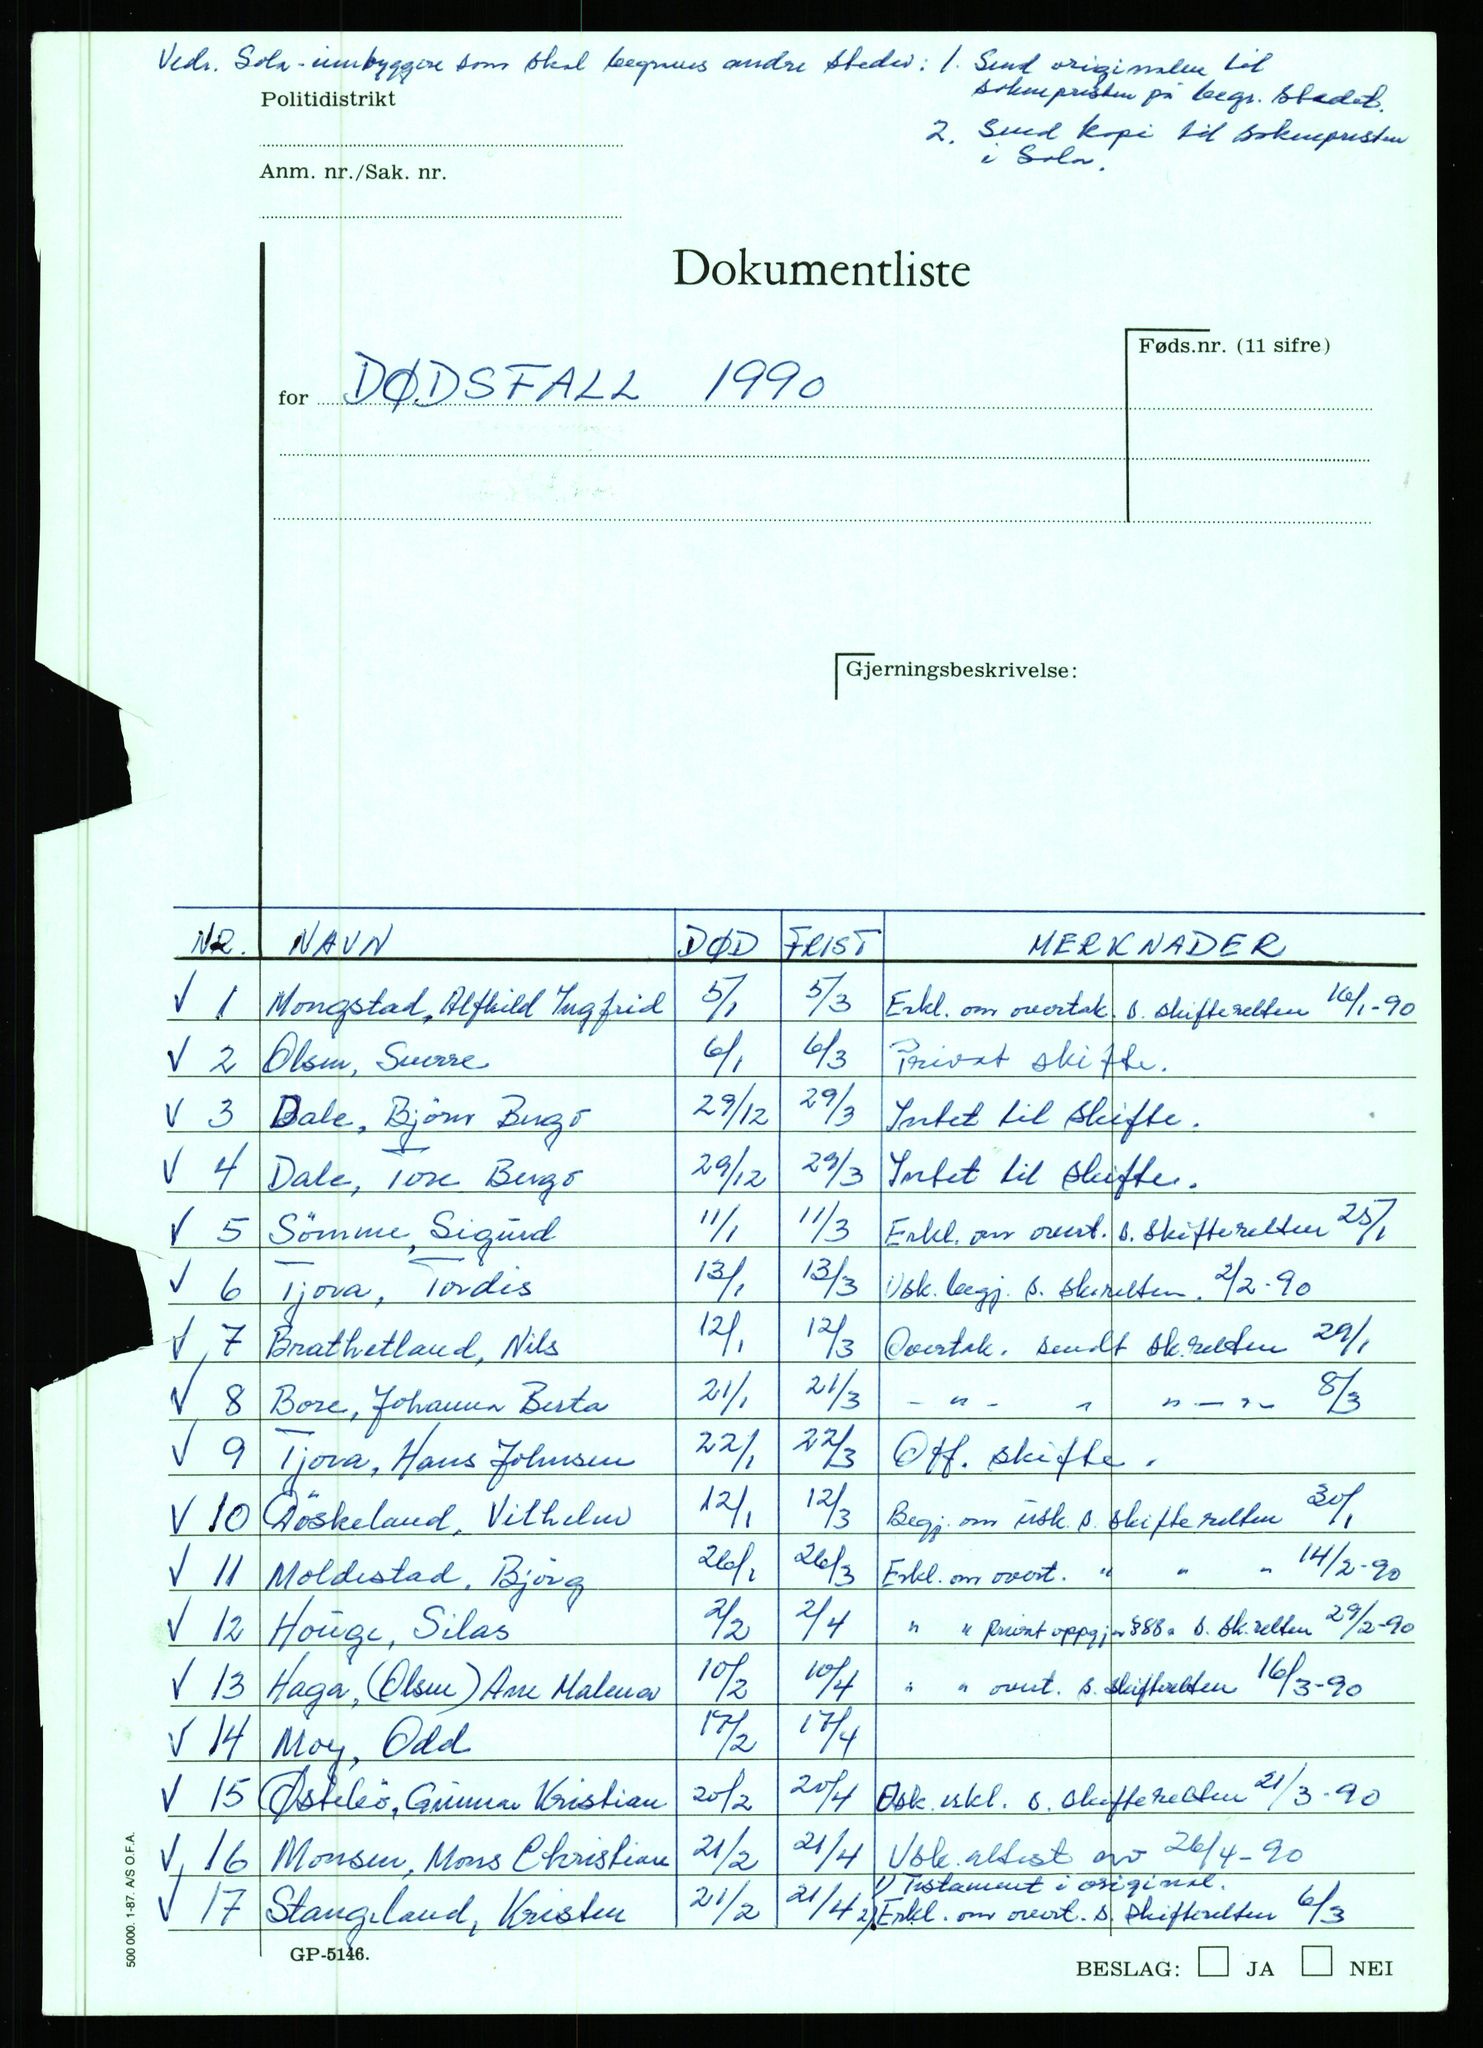 Vedr. Sola-innbyggere som skal begraves andre steder: 1. Send originalen til
soknepresten på begr. stedet.
2. Send kopi til soknepresten
i Sola.
Politidistrikt
Anm. nr./Sak. nr.
Dokumentliste
Føds.nr. (11 sifre)
for DØDSFALL 1990
Gjerningsbeskrivelse:
NR. NAVN DØD FRIST MERKNADER
V 1 Mongstad, Alfhild Ingfrid 5/1 5/3 Erkl. om overtak. s. skifteretten 16/1-90
V 2 Olsen, Sverre 6/1 6/3 Privat skifte.
V 3 Dale, Bjørn Bergø 29/12 29/3 Intet til skifte.
V 4 Dale, Tore Bergø 29/12 29/3 Intet til skifte.
V 5 Sömme, Sigurd 11/1 11/3 Erkl. om overt. s. skifteretten 25/1
V 6 Tjora, Tordis 13/1 13/3 Usk. begj. s. sk.retten. 2/2-90
V 7 Brathetland, Nils 12/1 12/3 Overtak. sendt sk.retten 29/1
V 8 Bore, Johanna Berta 21/1 21/3 - " - " " - " - 8/3
V 9 Tjora, Hans Johnsen 22/1 22/3 Off. skifte.
V 10 Döskeland, Vilhelm 12/1 12/3 Begj. om usk. s. skifteretten 30/1
V 11 Moldestad, Bjørg 26/1 26/3 Erkl. om overt. " " " 14/2-90
V 12 Houge, Silas 2/2 2/4 " " privat oppgj. § 88a s. sk.retten 29/2-90
V 13 Haga, (Olsen) Ane Malena 10/2 10/4 " " overt. s. skifteretten 16/3-90
V 14 Moy, Odd 17/2 17/4
V 15 Østebö, Gunnar Kristian 20/2 20/4 Usk. erkl. s. skifteretten 21/3-90
V 16 Monsen, Mons Christian 21/2 21/4 Usk. attest av 26/4-90
1) Testament i original.
V 17 Stangeland, Kristen 21/2 21/4 2) Erkl. om overt. s. skifteretten 6/3
500 000. 1-87. A/S O.F.A.
GP-5146.
BESLAG: JA NEI